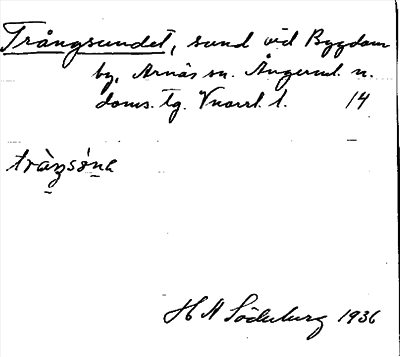 Trångsundet, sund vid Bygdom
by, Arnäs sn. Ångerml. n.
doms. tg. Vnorrl. l. 14
tràŋsú̱na
H N Söderberg 1936